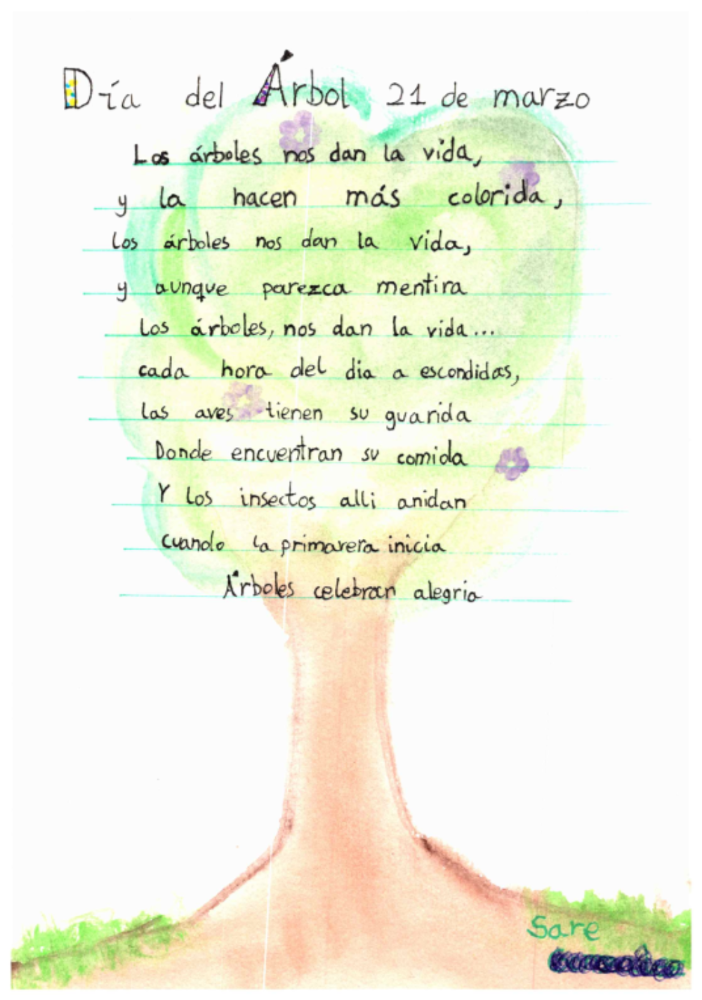 Día del Árbol 21 de marzo
Los árboles nos dan la vida,
y la hacen más colorida,
Los árboles nos dan la vida,
y aunque parezca mentira
Los árboles, nos dan la vida...
cada hora del dia a escondidas,
las aves tienen su guarida
Donde encuentran su comida
Y los insectos alli anidan
cuando la primavera inicia
Árboles celebran alegria
Sare